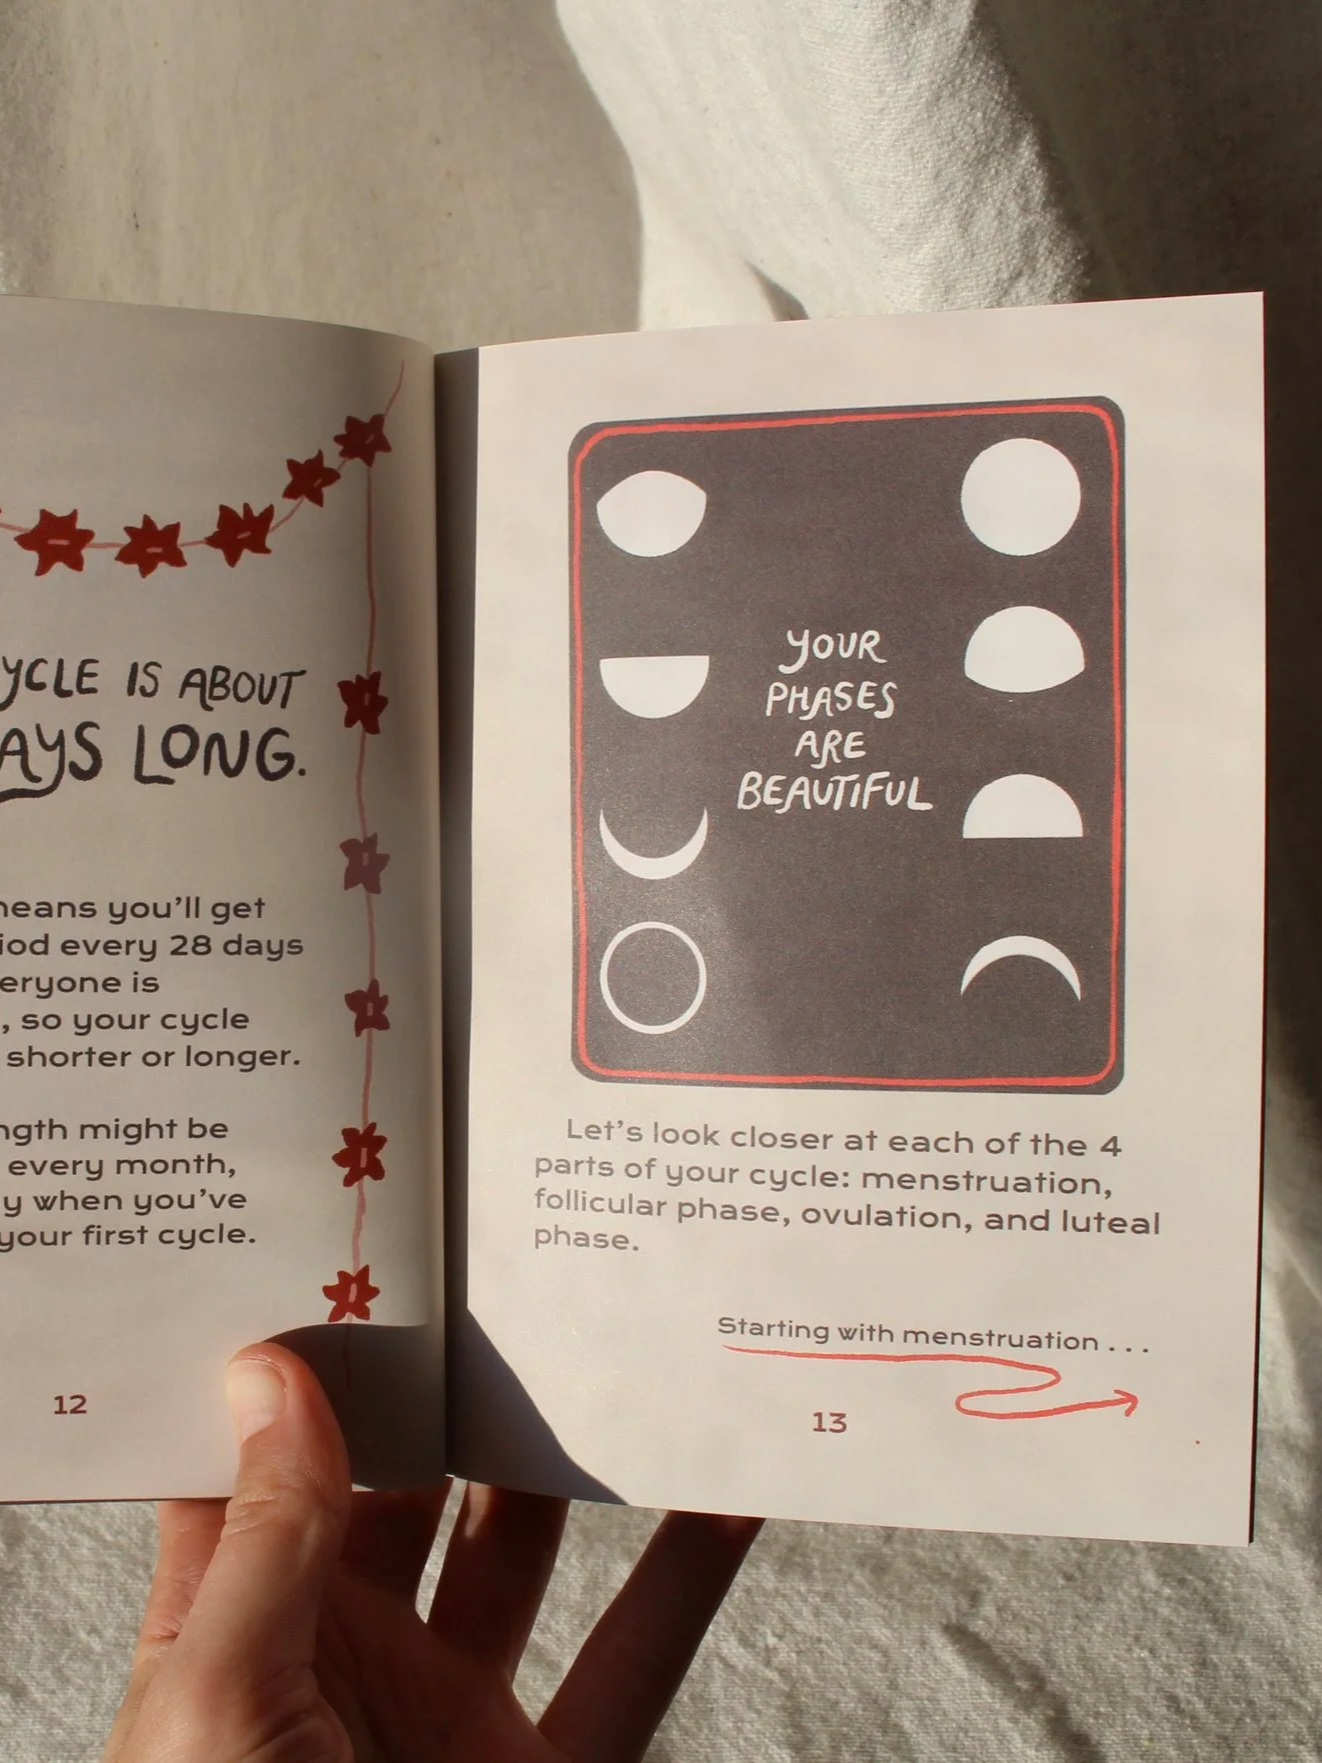 YCLE IS ABOUT
AYS LONG.
means you'll get
iod every 28 days
eryone is
, so your cycle
shorter or longer.
ngth might be
every month,
y when you've
your first cycle.
12
YOUR
PHASES
ARE
BEAUTIFUL
Let's look closer at each of the 4
parts of your cycle: menstruation,
follicular phase, ovulation, and luteal
phase.
Starting with menstruation . . .
13